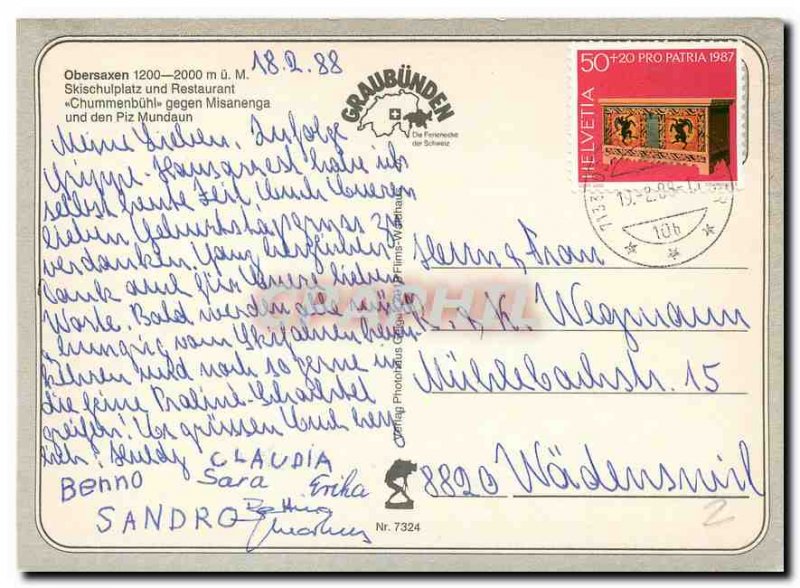 18.2.88
Obersaxen 1200—2000 m ü. M.
Skischulplatz und Restaurant
«Chummenbühl» gegen Misanenga
und den Piz Mundaun
GRAUBÜNDEN
Die Ferienecke
der Schweiz
50+20 PRO PATRIA 1987
HELVETIA
19.-2.88-
106
Meine Lieben. Zufolge
Grippe-Hausarrest habe ich
selbst heute Zeit, Euch Eueren
lieben Geburtstagsgruss zu
verdanken. Ganz herzlichen
Dank auch für Eure lieben
Worte. Bald werden alle
hungrig vom Skifahren heim-
kehren und noch so gerne in
die feine Praliné-Schachtel
greifen! Es grüssen Euch herz-
lich: Huldy CLAUDIA
Benno Sara Erika
SANDRO Bettina
Markus
Verlag Photohaus Flims-Waldhaus
Herrn & Frau
K. Wegmann
Mühlebachstr. 15
8820 Wädenswil
Nr. 7324
2